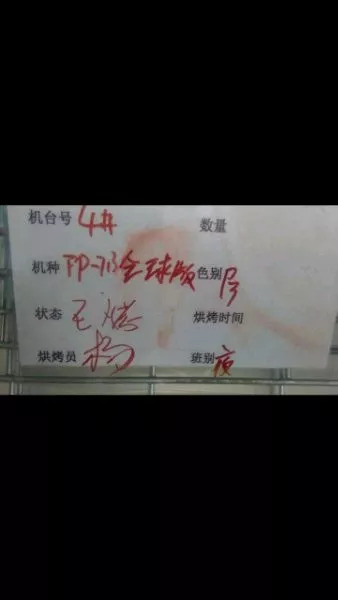 机台号 4# 数量
机种 TP-713全球版 色别
状态 已烤 烘烤时间
烘烤员 杨 班别 夜